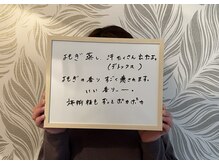 よもぎ蒸し 汗もたくさん出たよ。
(デトックス)
よもぎの香り すごく癒されます。
いい香り〜。
施術後もずっとポカポカ